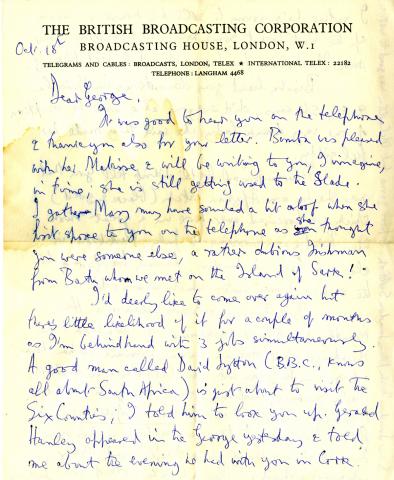 THE BRITISH BROADCASTING CORPORATION
BROADCASTING HOUSE, LONDON, W.1
TELEGRAMS AND CABLES: BROADCASTS, LONDON, TELEX ★ INTERNATIONAL TELEX: 22182
TELEPHONE: LANGHAM 4468
Oct. 18th
Dear George,
It was good to hear you on the telephone
& thank you also for your letter. Bimba was pleased
with her Matisse & will be writing to you, I imagine,
in time; she is still getting used to the Slade.
I gather Mary may have sounded a bit aloof when she
last spoke to you on the telephone as she thought
you were someone else, a rather dubious Irishman
from Bath whom we met on the Island of Sark!
I'd dearly like to come over again but
there's little likelihood of it for a couple of months
as I'm behindhand with 3 jobs simultaneously.
A good man called David Lytton (B.B.C., knows
all about South Africa) is just about to visit the
Six Counties; I told him to look you up. Gerald
Hanley appeared in the George yesterday & told
me about the evening he had with you in Cork.